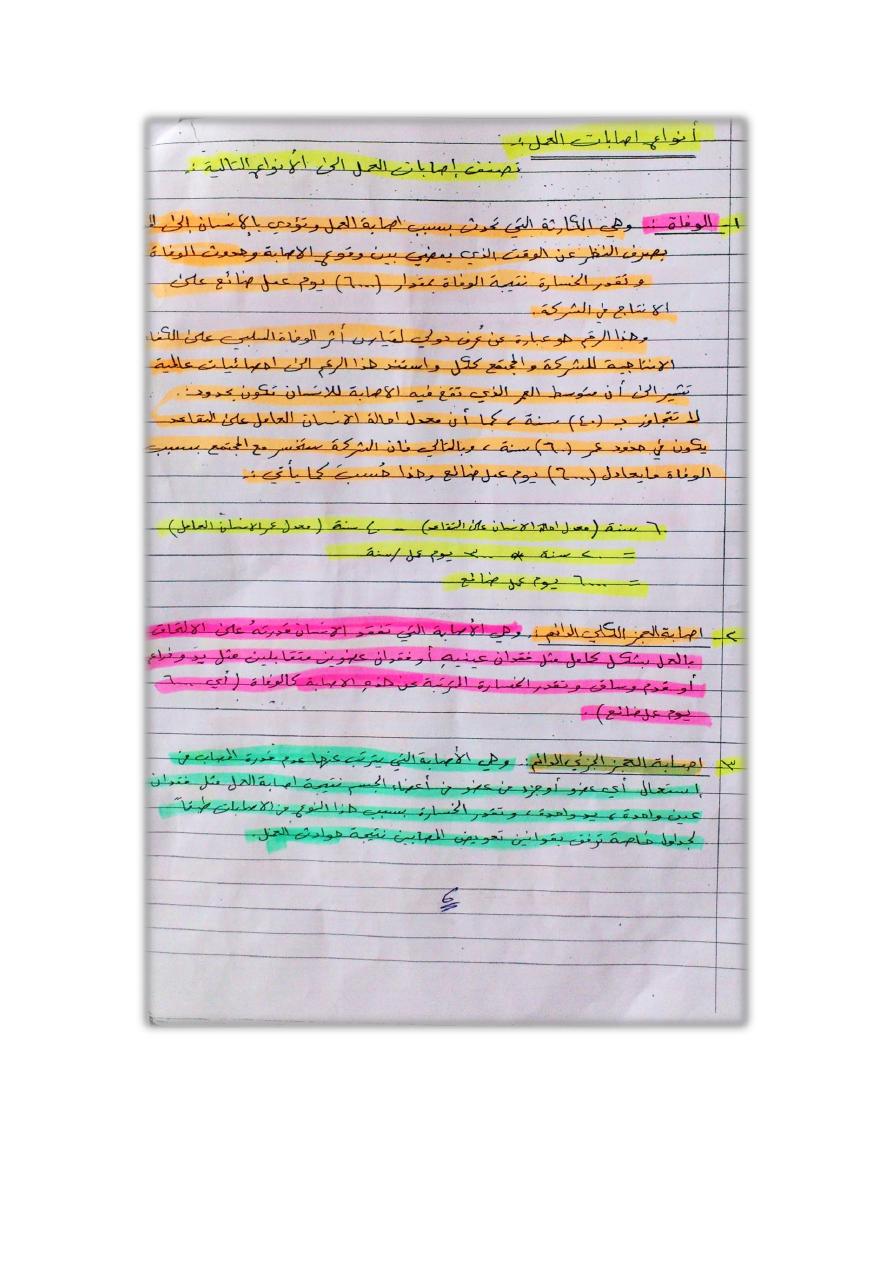 أنواع اصابات العمل :-
تصنف إصابات العمل الى الأنواع التالية :-
١- الوفاة :- وهي الكارثة التي تحدث بسبب اصابة العمل وتؤدي بالانسان إلى
بصرف النظر عن الوقت الذي يمضي بين وقوع الاصابة وحدوث الوفاة
وتقدر الخسارة نتيجة الوفاة بمقدار (٦٠٠٠) يوم عمل ضائع على
الانتاج في الشركة.
وهذا الرقم هو عبارة عن عُرف دولي لقياس أثر الوفاة السلبي على
الانتاجية للشركة والمجتمع ككل واستند هذا الرقم الى احصائيات عالمية
تشير الى أن متوسط العمر الذي تقع فيه الاصابة للانسان تكون بحدود :
لا تتجاوز بـ (٤٠) سنة ، كما أن معدل احالة الانسان العامل على التقاعد
يكون في حدود عمر (٦٠) سنة ، وبالتالي فان الشركة ستخسر مع المجتمع بسبب
الوفاة ما يعادل (٦٠٠٠) يوم عمل ضائع وهذا حُسبَ كما يأتي :-
٦٠ سنة (معدل احالة الانسان على التقاعد) - ٤٠ سنة (معدل عمر الانسان العامل)
= ٢٠ سنة * ٣٠٠ يوم عمل / سنة
= ٦٠٠٠ يوم عمل ضائع
٢- اصابة العجز الكلي الدائم : وهي الأصابة التي تفقد الانسان قدرته على الالتحاق
بالعمل بشكل كامل مثل فقدان عينيه أو فقدان عضوين متقابلين مثل يد وذراع
أو قدم وساق وتقدر الخسارة المرتبة عن هذه الاصابة كالوفاة (أي ٦٠٠٠
يوم عمل ضائع) .
٣- اصابة العجز الجزئي الدائم : وهي الأصابة التي يترتب عنها عدم قدرة المصاب من
إستعمال أي عضو أو جزء من عضو من أعضاء الجسم نتيجة اصابة العمل مثل فقدان
عين واحدة ، يد واحدة ، وتقدر الخسارة بسبب هذا النوع من الاصابات طبقاً
لجداول خاصة ترفق بقوانين تعويض المصابين نتيجة حوادث العمل .
6